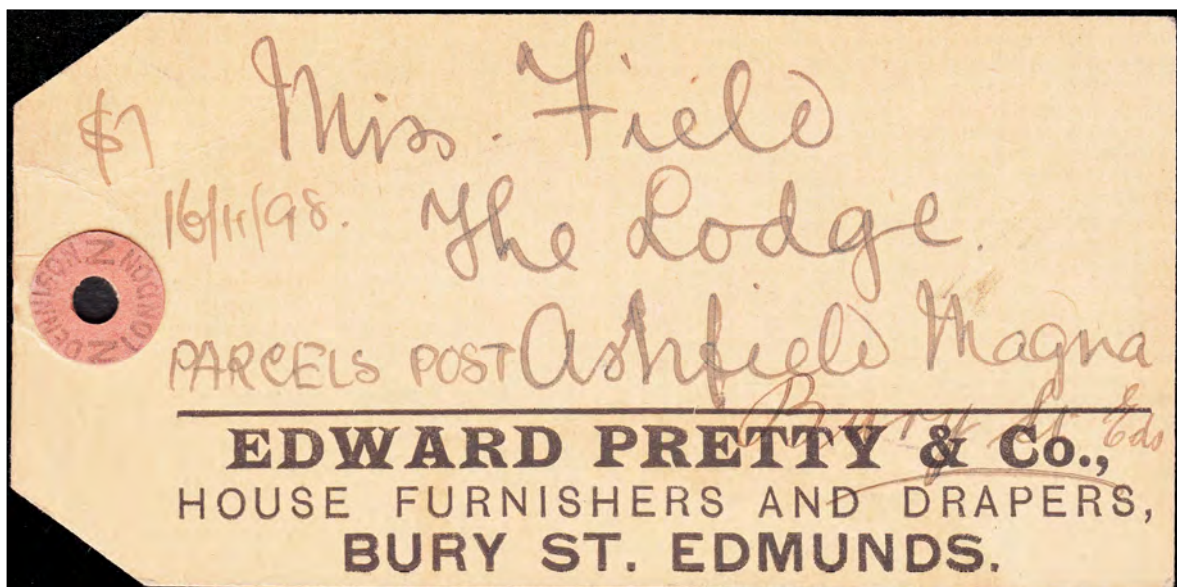 $7
Miss. Field
16/11/98. The Lodge.
DENNISON LONDON
PARCELS POST Ashfield Magna
Bury St Eds
EDWARD PRETTY & Co.,
HOUSE FURNISHERS AND DRAPERS,
BURY ST. EDMUNDS.